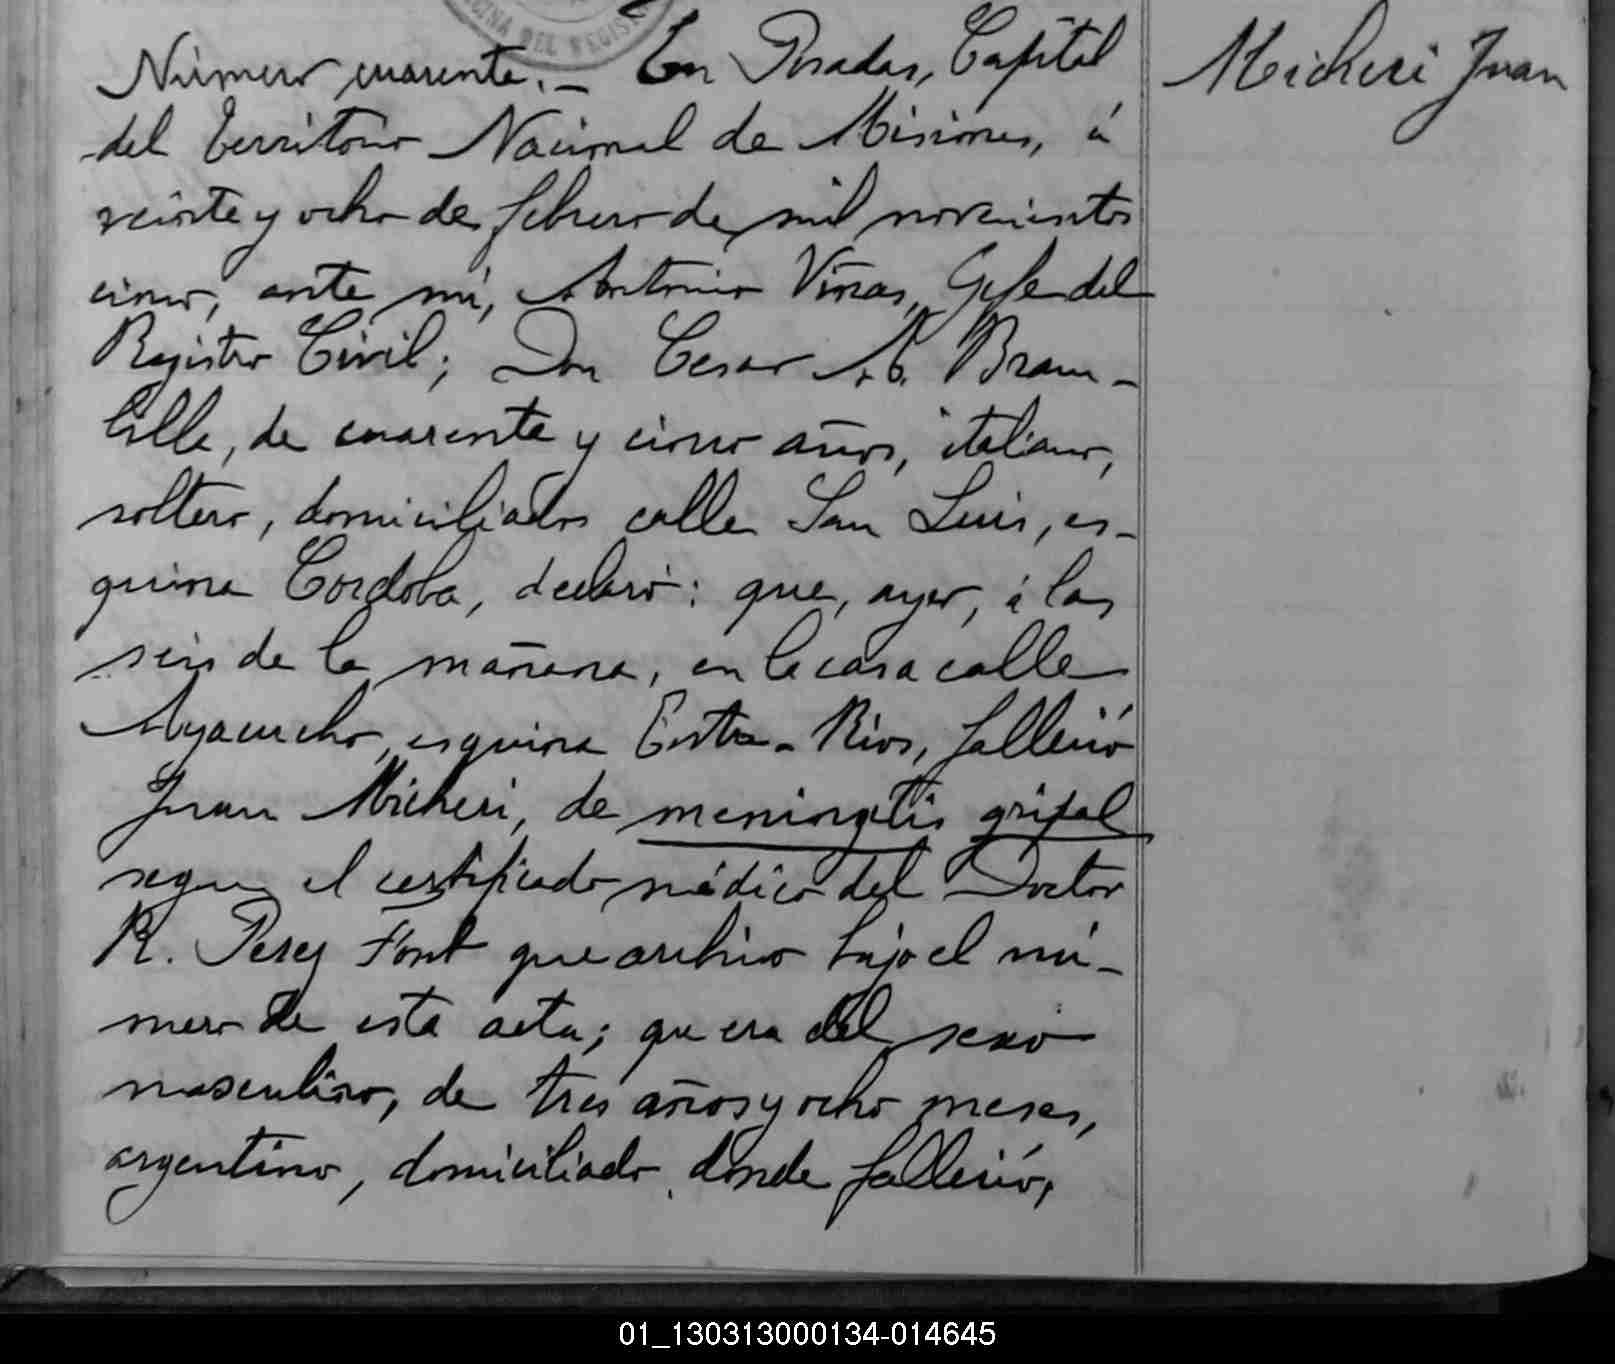 OFICINA DEL REGIS
Número cuarenta. _ En Posadas, Capital
del Territorio Nacional de Misiones, á
veinte y ocho de febrero de mil novecientos
cinco, ante mí, Antonio Viñas, Gefe del
Registro Civil; Don Cesar A. Bram-
billa, de cuarenta y cinco años, italiano,
soltero, domiciliados calle San Luis, es-
quina Cordoba, declaró: que, ayer, á las
seis de la mañana, en la casa calle
Ayacucho, esquina Entre-Rios, falleció
Juan Micheri, de meningitis gripal
segun el certificado médico del Doctor
R. Perez Font que archivo bajo el nú-
mero de esta acta; que era del sexo
masculino, de tres años y ocho meses,
argentino, domiciliado donde falleció,
Micheri Juan
01_130313000134-014645